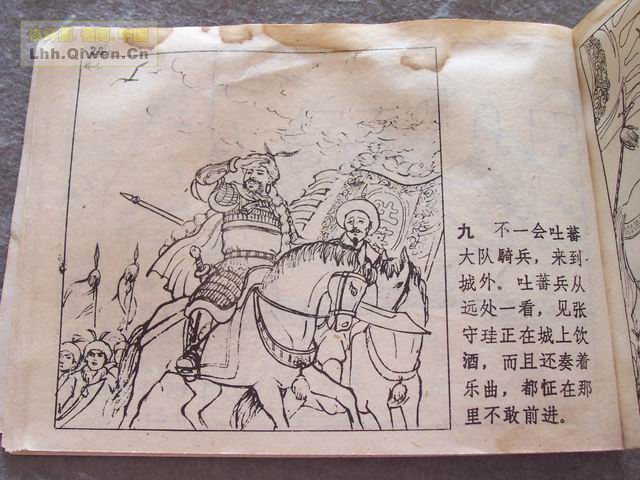 Lhh.Qiwen.Cn
九 不一会吐蕃
大队骑兵，来到
城外。吐蕃兵从
远处一看，见张
守珪正在城上饮
酒，而且还奏着
乐曲，都怔在那
里不敢前进。